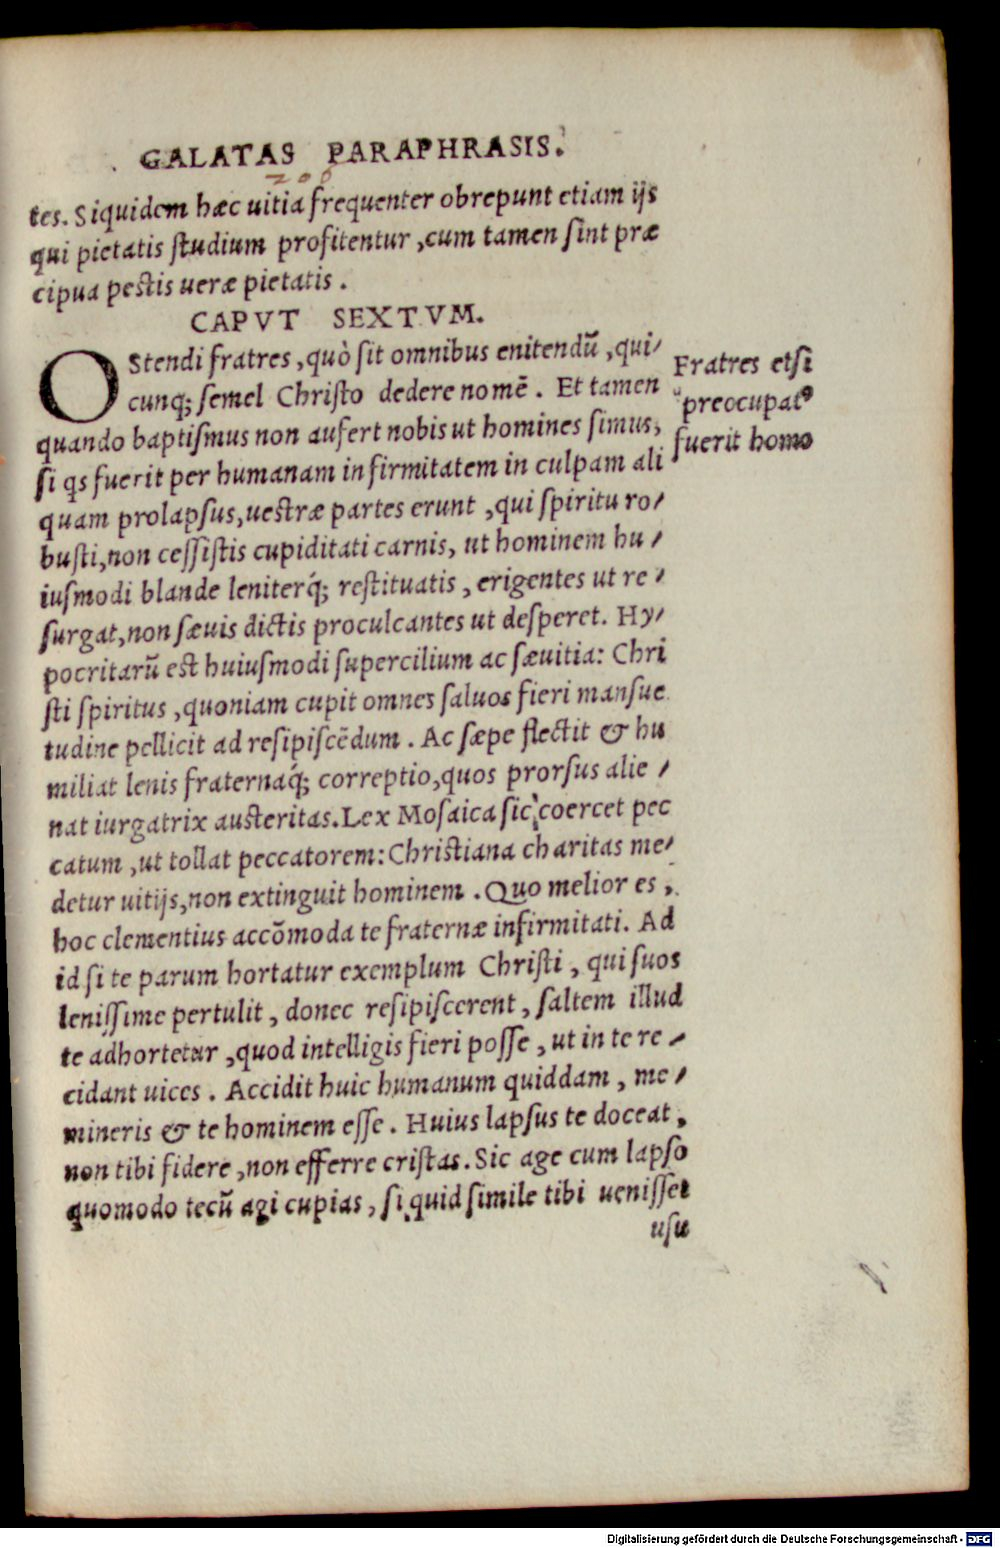 GALATAS PARAPHRASIS.
206
tes. Siquidem hæc uitia frequenter obrepunt etiam ijs
qui pietatis ſtudium profitentur, cum tamen ſint præ
cipua peſtis ueræ pietatis.
CAPVT SEXTVM.
OStendi fratres, quò ſit omnibus enitendū, qui/
cunq; ſemel Chriſto dedere nomē. Et tamen
quando baptiſmus non aufert nobis ut homines ſimus,
ſi qs fuerit per humanam infirmitatem in culpam ali
quam prolapſus, ueſtræ partes erunt, qui ſpiritu ro/
buſti, non ceſſiſtis cupiditati carnis, ut hominem hu/
iuſmodi blande leniterq́; reſtituatis, erigentes ut re/
ſurgat, non ſæuis dictis proculcantes ut deſperet. Hy/
pocritarū eſt huiuſmodi ſupercilium ac ſæuitia: Chri
ſti ſpiritus, quoniam cupit omnes ſaluos fieri manſue
tudine pellicit ad reſipiſcēdum. Ac ſæpe flectit & hu
miliat lenis fraternaq́; correptio, quos prorſus alie/
nat iurgatrix auſteritas. Lex Moſaica ſic coercet pec
catum, ut tollat peccatorem: Chriſtiana charitas me/
detur uitijs, non extinguit hominem. Quo melior es,
hoc clementius accōmoda te fraternæ infirmitati. Ad
id ſi te parum hortatur exemplum Chriſti, qui ſuos
leniſſime pertulit, donec reſipiſcerent, ſaltem illud
te adhortetur, quod intelligis fieri poſſe, ut in te re/
cidant uices. Accidit huic humanum quiddam, me/
mineris & te hominem eſſe. Huius lapſus te doceat,
non tibi fidere, non efferre criſtas. Sic age cum lapſo
quomodo tecū agi cupias, ſi quid ſimile tibi ueniſſet
uſu
Fratres etſi
preocupatꝰ
fuerit homo
Digitalisierung gefördert durch die Deutsche Forschungsgemeinschaft - DFG